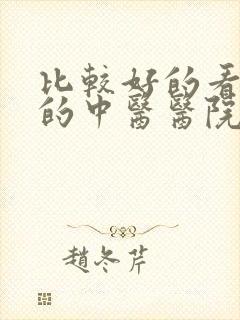 比較好的看
的中醫醫院
趙冬芹